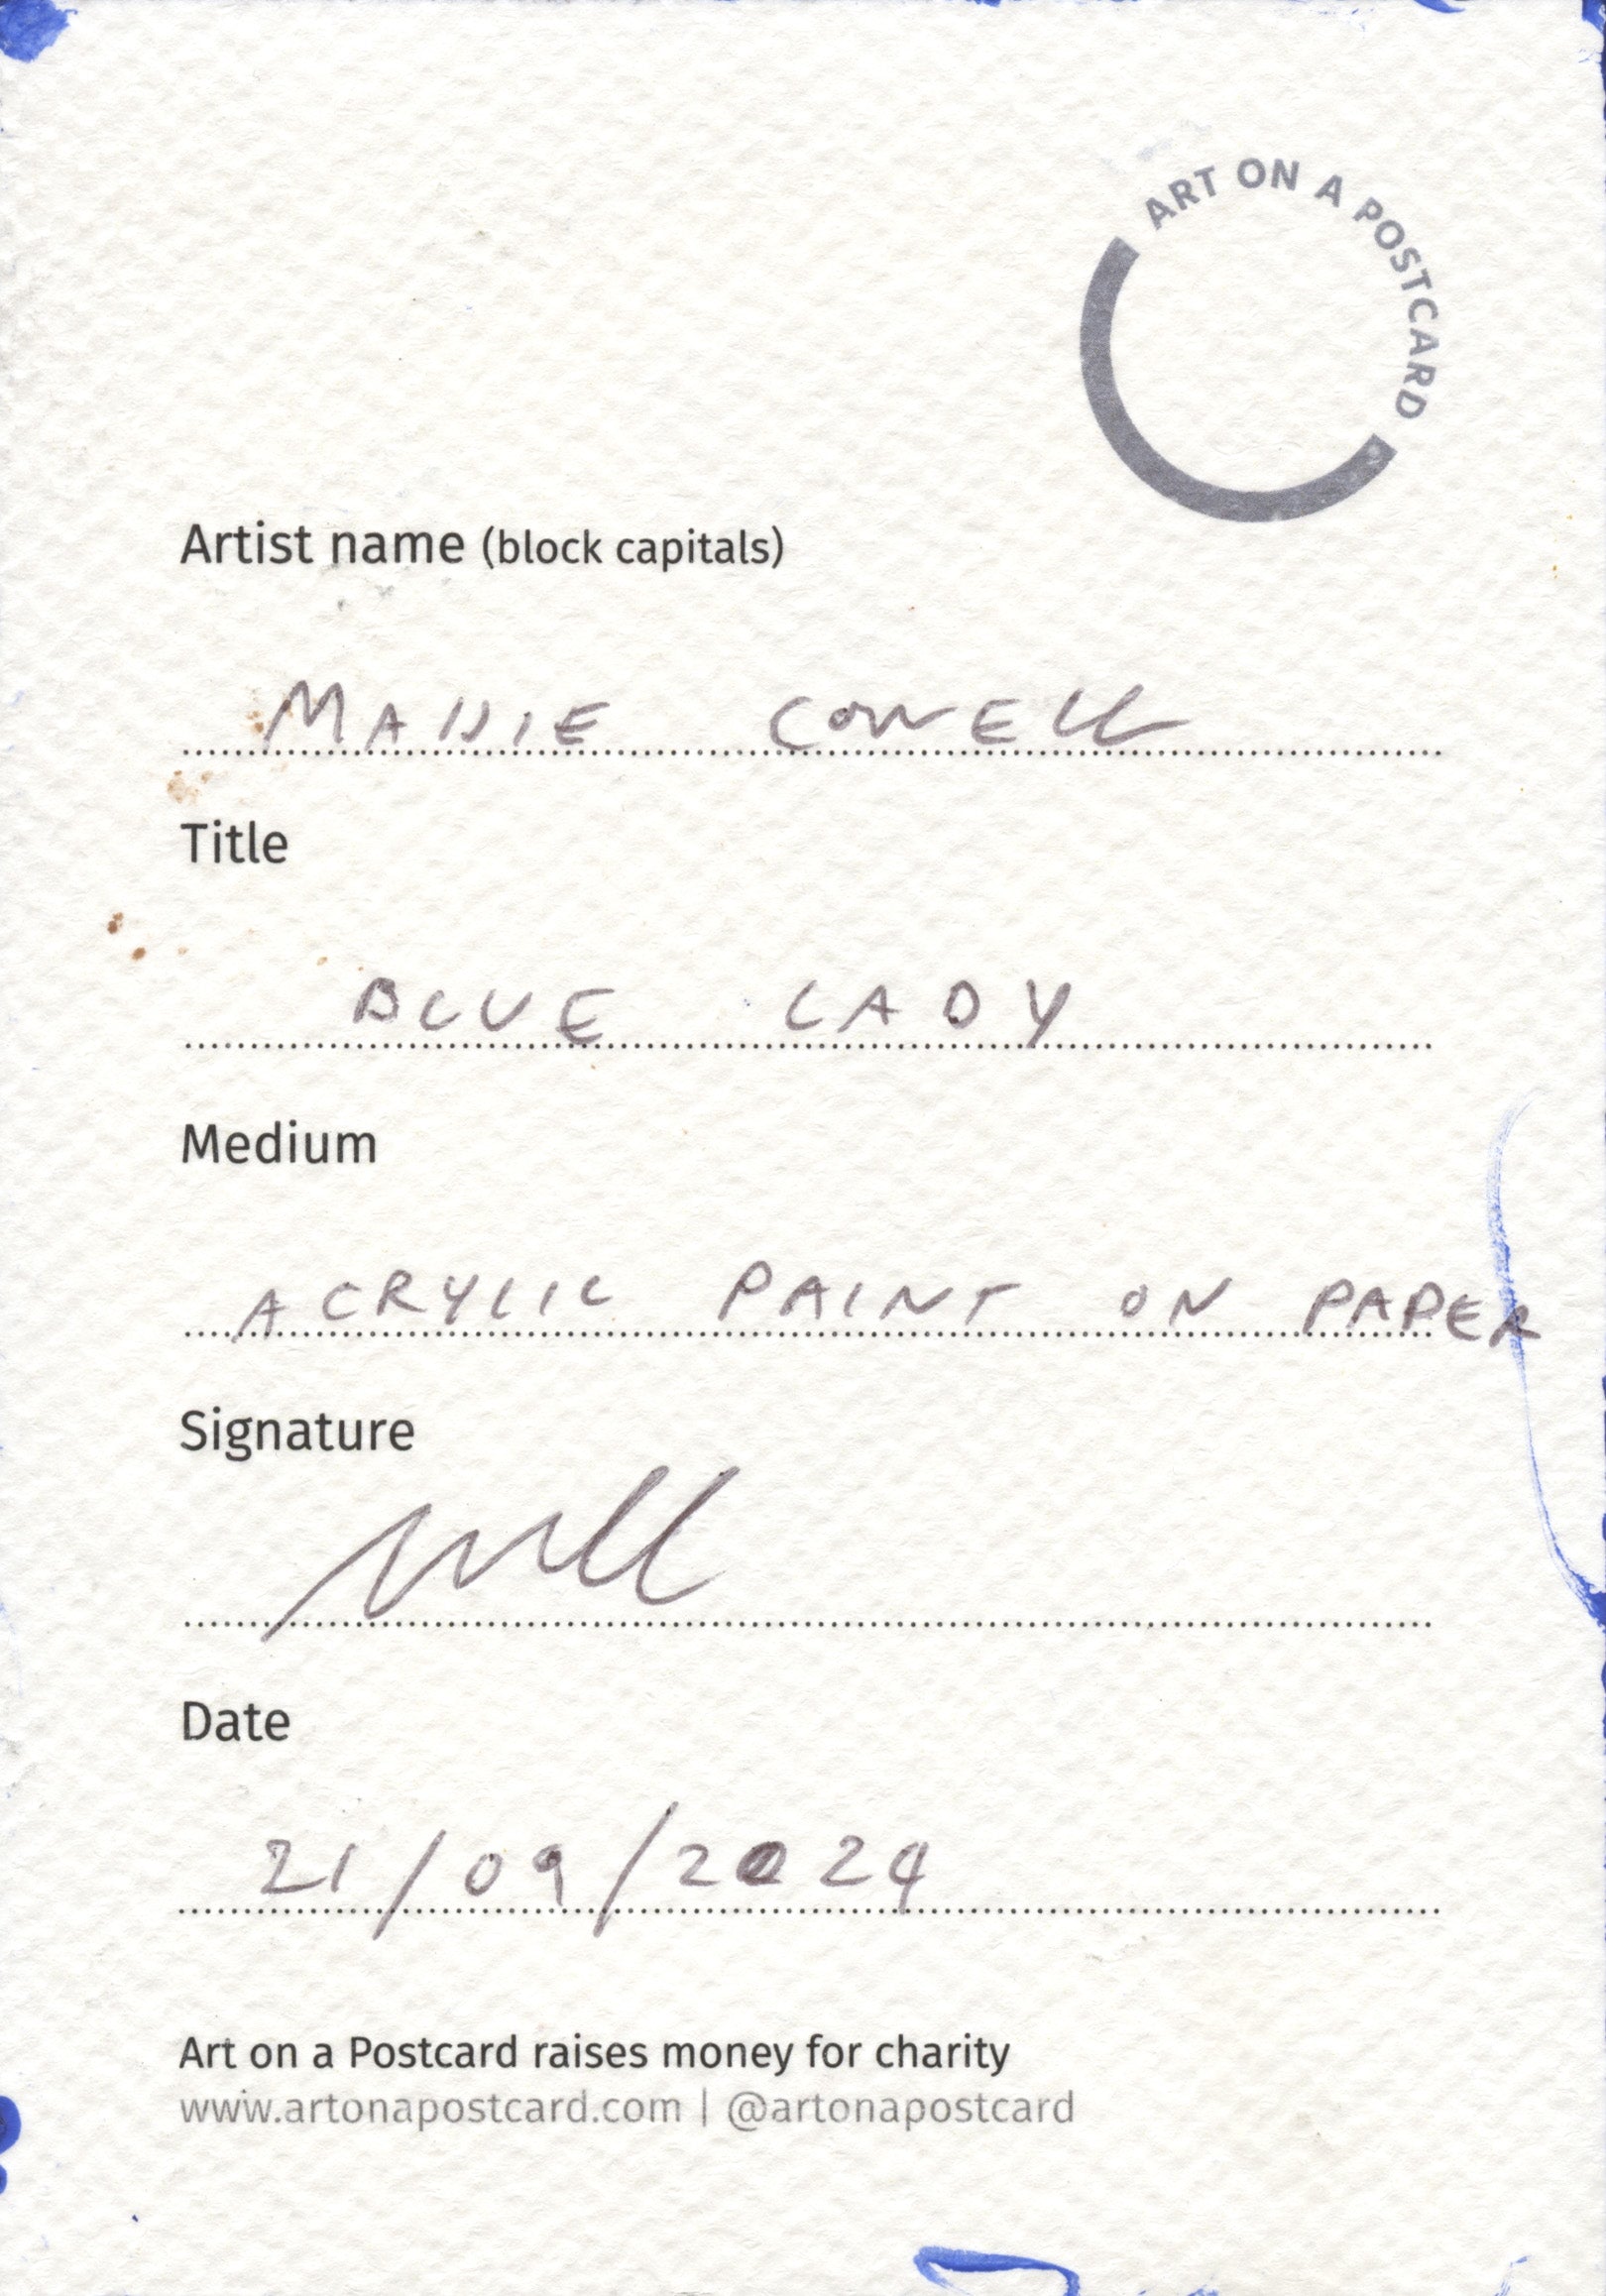 ART ON A POSTCARD
Artist name (block capitals)
MAISIE COWELL
Title
BLUE LADY
Medium
ACRYLIC PAINT ON PAPER
Signature
Date
21/09/2024
Art on a Postcard raises money for charity
www.artonapostcard.com | @artonapostcard